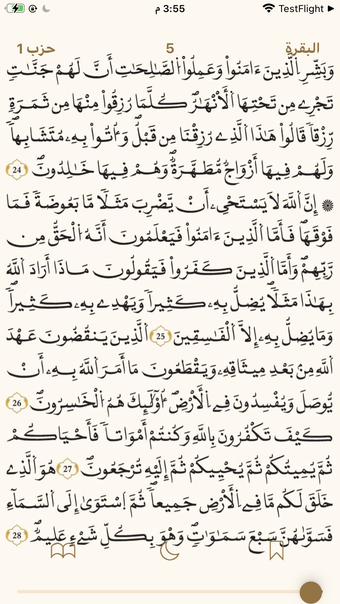 3:55 م TestFlight
البقرة 5 حزب 1
وَبَشِّرِ الَّذِينَ ءَامَنُوا وَعَمِلُوا الصَّالِحَاتِ أَنَّ لَهُمْ جَنَّاتٍ
تَجْرِي مِن تَحْتِهَا الْأَنْهَارُ كُلَّمَا رُزِقُوا مِنْهَا مِن ثَمَرَةٍ
رِّزْقاً قَالُوا هَذَا الَّذِي رُزِقْنَا مِن قَبْلُ وَأُتُوا بِهِ مُتَشَابِهاً
وَلَهُمْ فِيهَا أَزْوَاجٌ مُّطَهَّرَةٌ وَهُمْ فِيهَا خَالِدُونَ 24
۞ إِنَّ اللَّهَ لَا يَسْتَحْيِ أَنْ يَّضْرِبَ مَثَلًا مَّا بَعُوضَةً فَمَا
فَوْقَهَا فَأَمَّا الَّذِينَ ءَامَنُوا فَيَعْلَمُونَ أَنَّهُ الْحَقُّ مِن
رَّبِّهِمْ وَأَمَّا الَّذِينَ كَفَرُوا فَيَقُولُونَ مَاذَا أَرَادَ اللَّهُ
بِهَذَا مَثَلًا يُضِلُّ بِهِ كَثِيراً وَيَهْدِي بِهِ كَثِيراً
وَمَا يُضِلُّ بِهِ إِلَّا الْفَاسِقِينَ 25 الَّذِينَ يَنقُضُونَ عَهْدَ
اللَّهِ مِنْ بَعْدِ مِيثَاقِهِ وَيَقْطَعُونَ مَا أَمَرَ اللَّهُ بِهِ أَنْ
يُّوصَلَ وَيُفْسِدُونَ فِي الْأَرْضِ أُوْلَئِكَ هُمُ الْخَاسِرُونَ 26
كَيْفَ تَكْفُرُونَ بِاللَّهِ وَكُنتُمْ أَمْوَاتاً فَأَحْيَاكُمْ
ثُمَّ يُمِيتُكُمْ ثُمَّ يُحْيِيكُمْ ثُمَّ إِلَيْهِ تُرْجَعُونَ 27 هُوَ الَّذِي
خَلَقَ لَكُم مَّا فِي الْأَرْضِ جَمِيعاً ثُمَّ اسْتَوَى إِلَى السَّمَاءِ
فَسَوَّاهُنَّ سَبْعَ سَمَاوَاتٍ وَهْوَ بِكُلِّ شَيْءٍ عَلِيمٌ 28